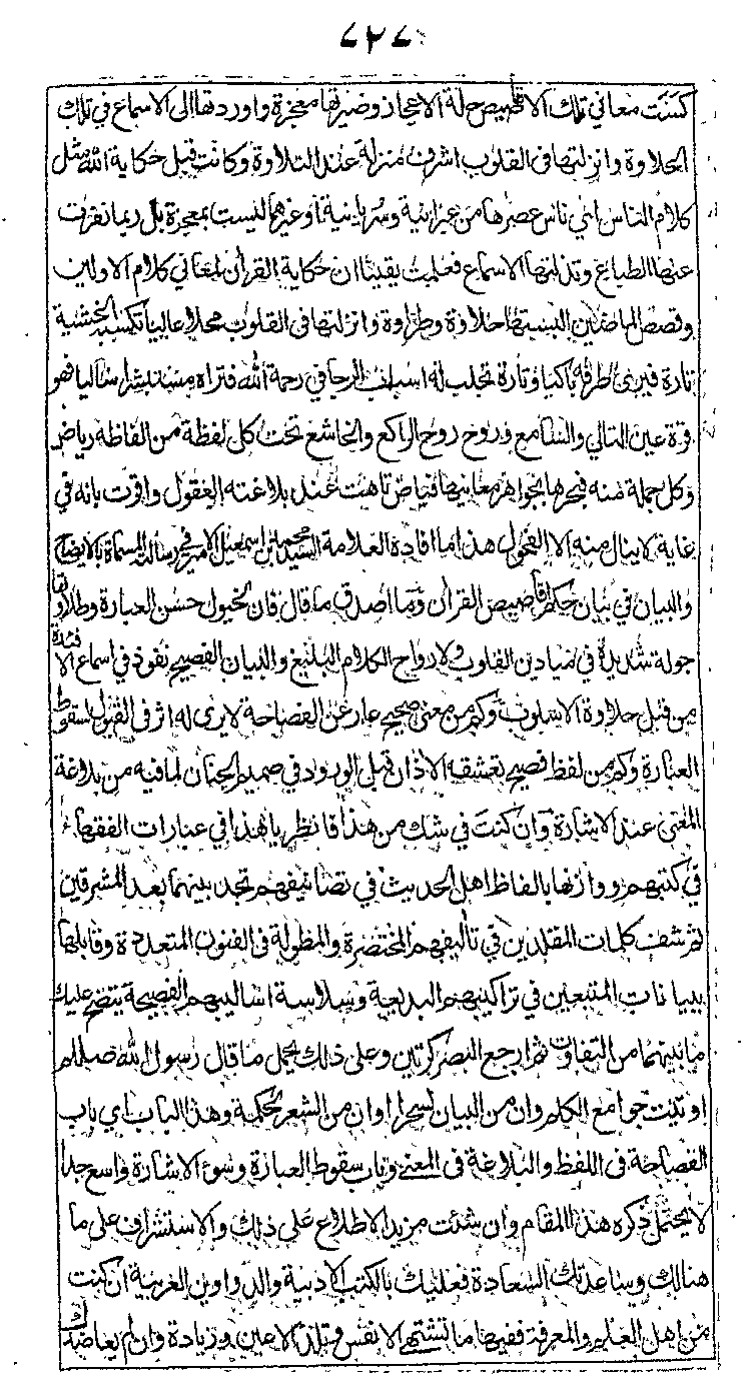 ٤٢٤
كست معاني تلك الاقاصيص حلة الاعجاز وصيرتها معجزة واوردتها الى الاسماع في تلك
الحلاوة وانزلتها في القلوب اشرف منزلة عند التلاوة وكانت قبل حكاية الله مثل
كلام الناس اي ناس عصرها من عبرانية وسريانية او غيرهما ليست بمعجزة بل ربما نفرت
عنها الطباع وتذلتها الاسماع فعلمت يقينا ان حكاية القرآن لمعاني كلام الاولين
وقصص الماضين البستها حلاوة وطراوة وانزلتها في القلوب محلا عاليا تكسب الخشية
تارة فيرى طرفه باكيا وتارة تجلب له اسباب الرجا في رحمة الله فتراه مستبشرا ساليا فهو
قرة عين التالي والسامع وروح روح الراكع والخاشع تحت كل لفظة من الفاظه رياض
وكل جملة منه فبحرها بجواهر معانيها فياض تاهت عند بلاغته العقول واقرت بانه في
غاية لا ينال منه الا الفحول هذا ما افاده العلامة السيد محمد بن اسمعيل الامير في رسالته المسماة بالايضاح
والبيان في بيان حكم اقاصيص القرآن وما اصدق ما قال فان لخيول حسن العبارة وطلاوتها
جولة شديدة في ميادين القلوب ولارواح الكلام البليغ والبيان الفصيح نفوذ في اسماع الافئدة
من قبل حلاوة الاسلوب وكم من معنى صحيح عار عن الفصاحة لا يرى له اثر في القبول لسقوط
العبارة وكم من لفظ فصيح تعشقه الاذان قبل الورود في صميم الجنان لما فيه من بلاغة
المعنى عند الاشارة وان كنت في شك من هذا فانظر يا هذا في عبارات الفقهاء
في كتبهم ووازنها بالفاظ اهل الحديث في تصانيفهم تجد بينهما بعد المشرقين
ثم شف كلمات المقلدين في تأليفهم المختصرة والمطولة في الفنون المتعددة وقابلها
ببيانات المتبعين في تراكيبهم البديعة وسلاسة اساليبهم الفصيحة يتضح عليك
ما بينهما من التفاوت ثم ارجع البصر كرتين وعلى ذلك يحمل ما قال رسول الله صللم
اوتيت جوامع الكلم وان من البيان لسحرا وان من الشعر لحكمة وهذا الباب اي باب
الفصاحة في اللفظ والبلاغة في المعنى وباب سقوط العبارة وسوء الاشارة واسع جدا
لا يحتمل ذكره هذا المقام وان شئت مزيد الاطلاع على ذلك والاستشراف على ما
هنالك وساعدتك السعادة فعليك بالكتب الادبية والدواوين العربية ان كنت
من اهل العلم والمعرفة ففيها ما تشتهي الانفس وتلذ الاعين وزيادة وان لم يعاضدك